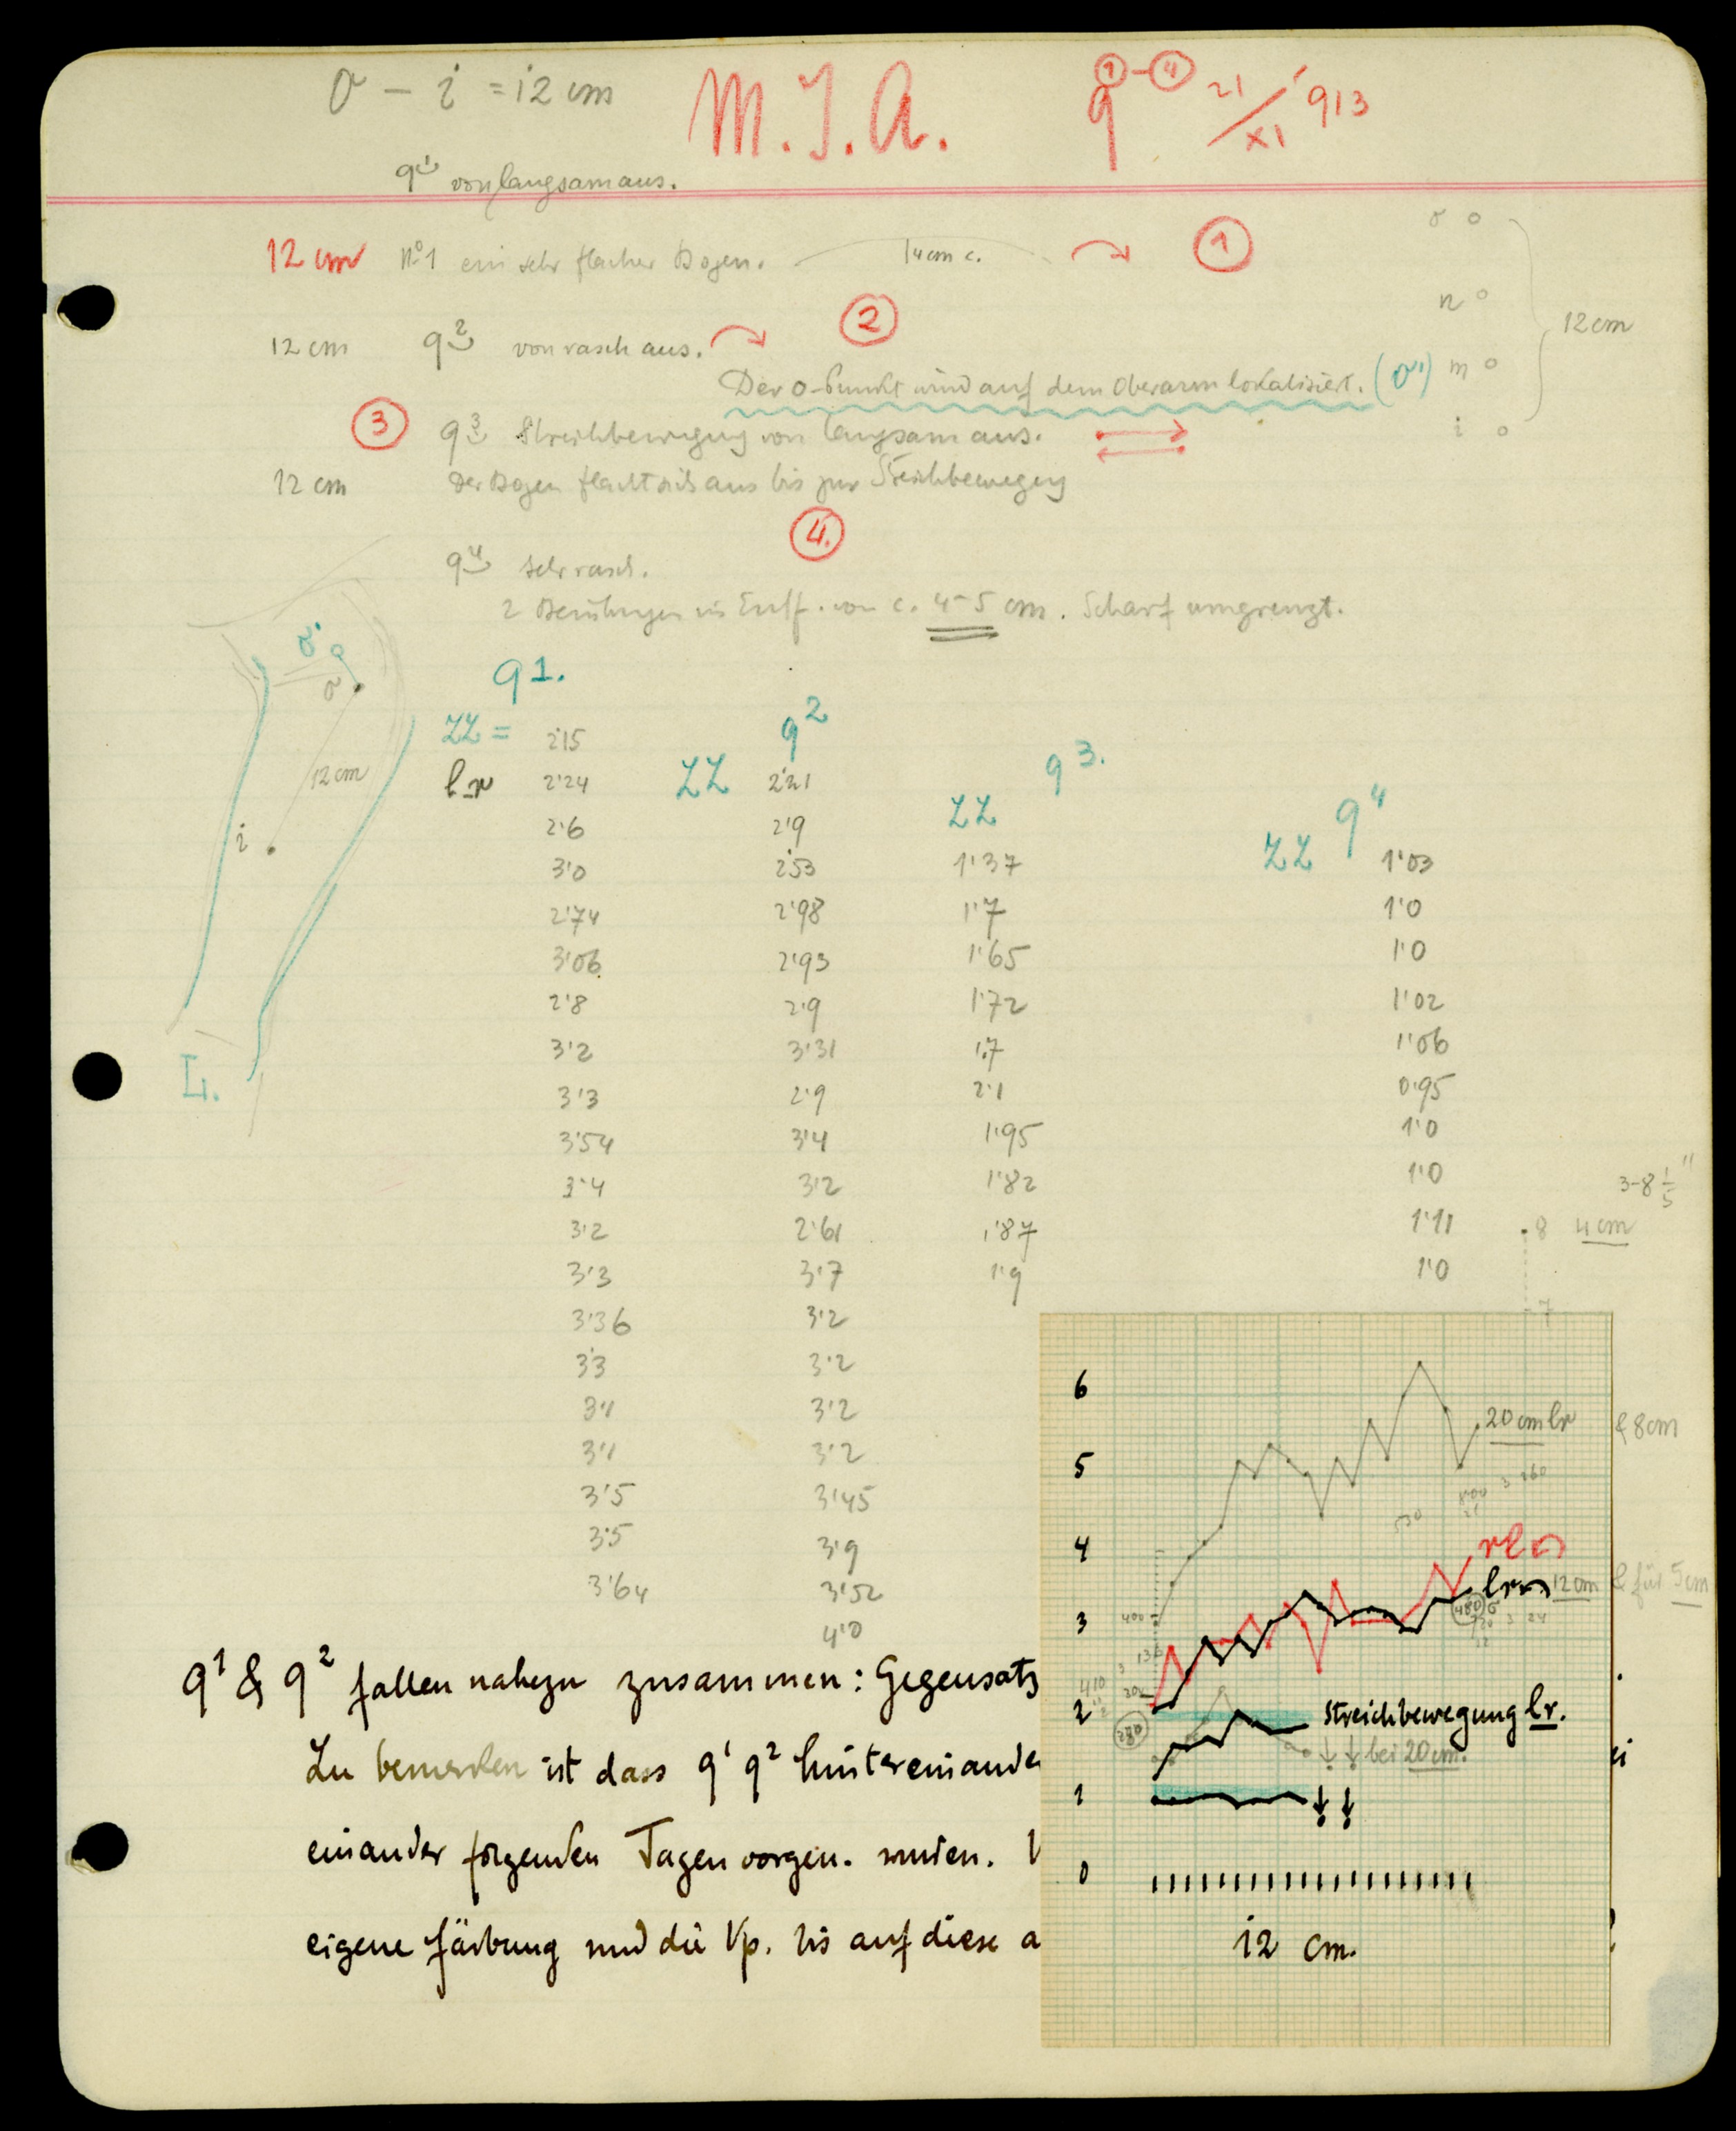 σ – i = 12 cm
M. J. A.
q ①-④ 21/XI '913
q¹ von langsam aus.
12 cm N°1 ein sehr flacher Bogen. 14 cm c. ①
σ o
n o
m o
i o
12 cm
12 cm q² von rasch aus. ②
Der σ-Punkt wird auf dem Oberarm lokalisiert. (σ')
③ q³ Streichbewegung von langsam aus.
12 cm Der Bogen flacht sich aus bis zur Streichbewegung
④
q⁴ sehr rasch.
2 Berührungen in Entf. von c. 4-5 cm. Scharf umgrenzt.
σ'
σ
12 cm
i
L.
q 1.
ZZ = 2'15
lr 2'24
2'6
3'0
2'74
3'06
2'8
3'2
3'3
3'54
3'4
3'2
3'3
3'36
3'3
3'1
3'1
3'5
3'5
3'64
q²
ZZ 2'21
2'9
2'53
2'98
2'93
2'9
3'31
2'9
3'4
3'2
2'61
3'7
3'2
3'2
3'2
3'2
3'45
3'9
3'52
4'0
q 3.
ZZ
1'37
1'7
1'65
1'72
1'7
2'1
1'95
1'82
1'87
1'9
q⁴
ZZ 1'03
1'0
1'0
1'02
1'06
0'95
1'0
1'0
1'11
1'0
3-8 1/5"
8 4 cm
7
8 cm
für 5 cm
q¹ & q² fallen nahezu zusammen: Gegensatz
Zu bemerken ist dass q¹ q² hintereinander
einander folgenden Tagen vorgen. wurden.
eigene Färbung und die Vp. bis auf diese a
6
5
4
3
2
1
0
20 cm lr
rl
lr 12 cm
480 σ
400
280
Streichbewegung lr.
↓ ↓ bei 20 cm.
↓ ↓
12 cm.